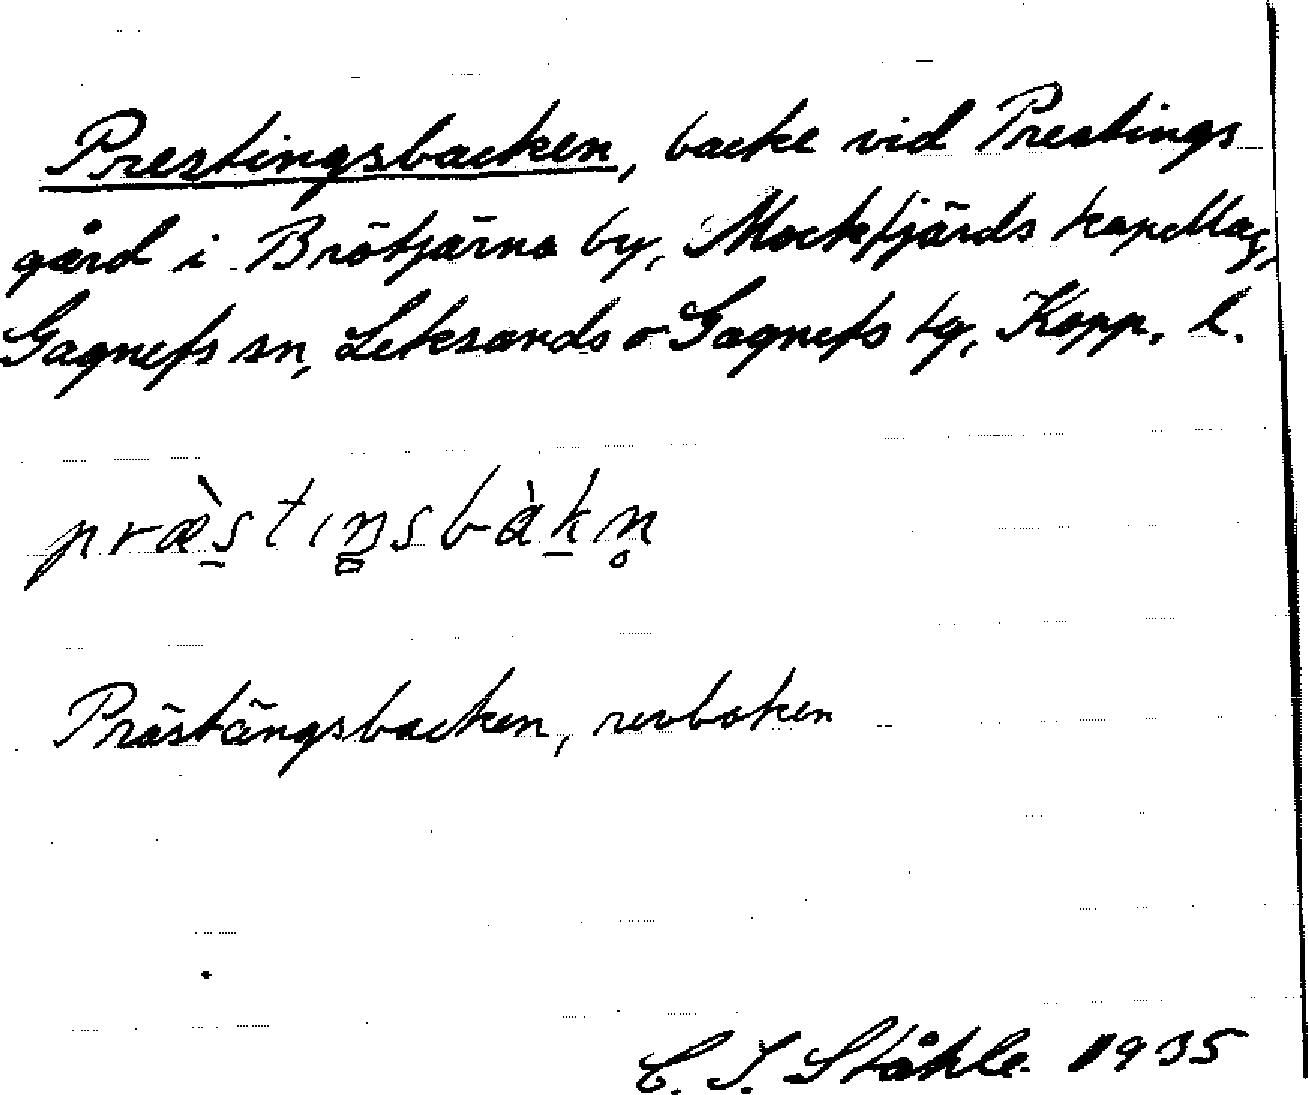 Prestingsbacken, backe vid Prestings
gård i Brötjärna by, Mockfjärds kapellag,
Gagnefs sn, Leksands o Gagnefs tg, Kopp. l.
præ̀s̠tıŋsbàk̠n̥
Prästängsbacken, revboken
C. I. Ståhle 1935